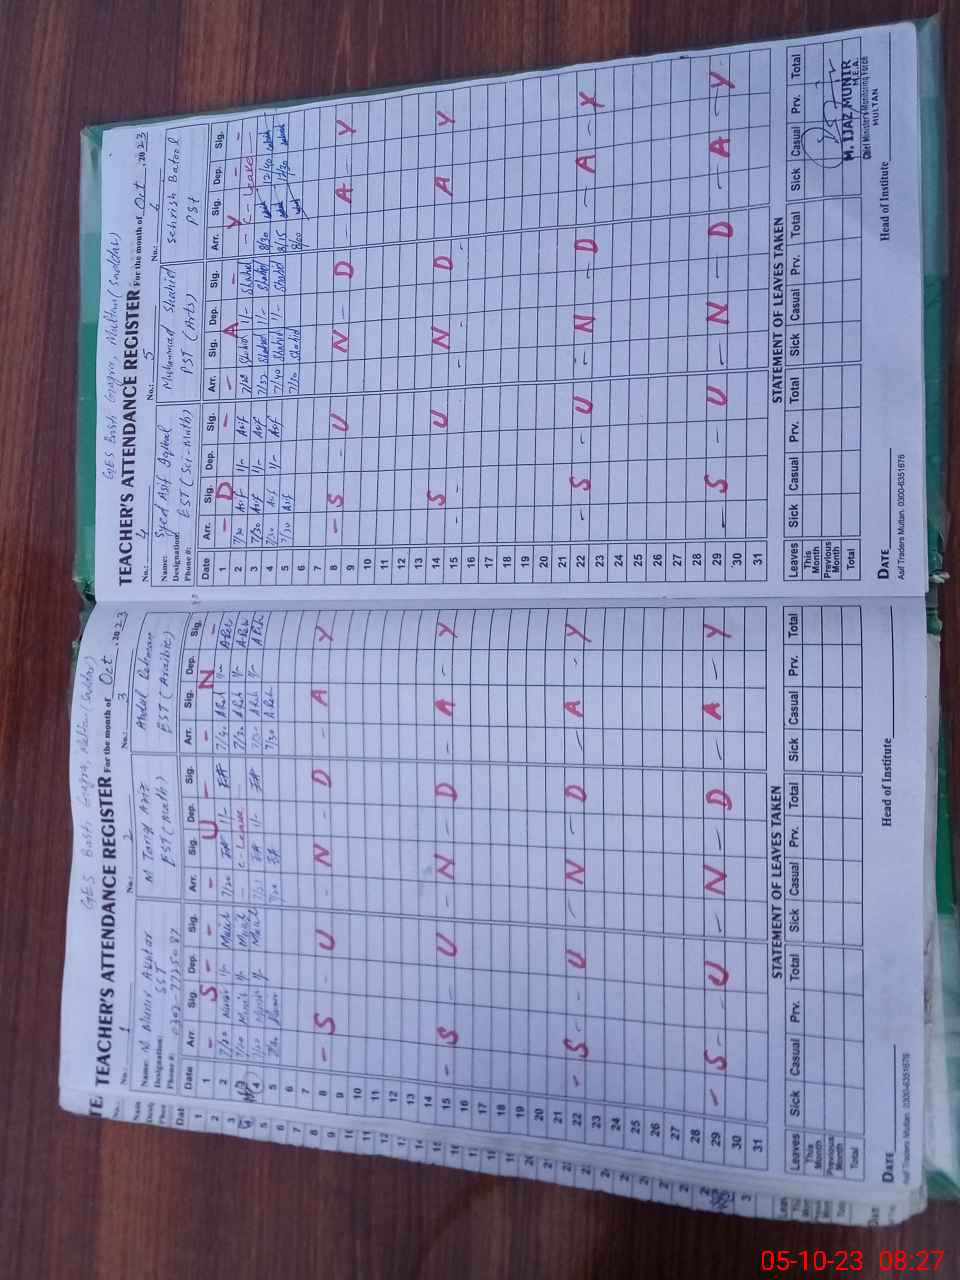 GES Basti Gagra, Multan (Saddar)
TEACHER'S ATTENDANCE REGISTER For the month of Oct, 2023
No.: 1 No.: 2 No.: 3
Name: M Munir Akhtar M Tariq Aziz Abdul Rehman
Designation: SST EST (Math) EST (Arabic)
Phone #:
Date Arr. Sig. Dep. Sig. Arr. Sig. Dep. Sig. Arr. Sig. Dep. Sig.
1 - S - - - U - - N -
2 7/30 Munir 1/- Malik 7/30 1/- 7/30 A Reh 1/- A Reh
3 7/30 Munir 1/- Malik - C-Leave - 7/30 A Reh 1/- A Reh
4 7/30 Munir 1/- Malik 1/- 7/30 A Reh 1/- A Reh
5 7/30 Munir 7/30 7/30 A Reh
6
7
8 - S - U - N - D - A - Y
9
10
11
12
13
14
15 - S - U - N - D - A - Y
16
17
18
19
20
21
22 - S - U - N - D - A - Y
23
24
25
26
27
28
29 - S - U - N - D - A - Y
30
31
STATEMENT OF LEAVES TAKEN
Leaves Sick Casual Prv. Total Sick Casual Prv. Total Sick Casual Prv. Total
This Month
Previous Month
Total
DATE Head of Institute
Asif Traders Multan. 0300-6351676
GES Basti Gagra, Multan (Saddar)
TEACHER'S ATTENDANCE REGISTER For the month of Oct, 2023
No.: 4 No.: 5 No.: 6
Name: Syed Asif Iqbal Muhammad Shahid Sehrish Batool
Designation: EST (Sci-Math) PST (Arts) PST
Phone #:
Date Arr. Sig. Dep. Sig. Arr. Sig. Dep. Sig. Arr. Sig. Dep. Sig.
1 - D - - A - Y - -
2 7/30 Asif 1/- Asif 7/28 Shahid 1/- Shahid - C-Leave -
3 7/30 Asif 1/- Asif 7/32 Shahid 1/- Shahid 8/20 12/40
4 7/30 Asif 1/- Asif 7/40 Shahid 1/- Shahid 8/15 12/30
5 7/30 Asif 7/30 Shahid 8/20
6
7
8 - S - U - N - D - A - Y
9
10
11
12
13
14
15 - S - U - N - D - A - Y
16
17
18
19
20
21
22 - S - U - N - D - A - Y
23
24
25
26
27
28
29 - S - U - N - D - A - Y
30
31
STATEMENT OF LEAVES TAKEN
Leaves Sick Casual Prv. Total Sick Casual Prv. Total Sick Casual Prv. Total
This Month
Previous Month
Total
M. IJAZ MUNIR
M.E.A.
Chief Minister's Monitoring Force
MULTAN
DATE Head of Institute
Asif Traders Multan. 0300-6351676
05-10-23 08:27